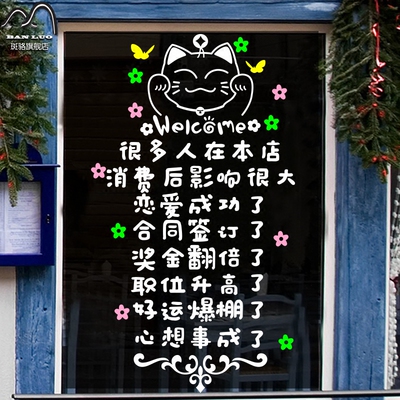 BAN LUO
斑骆旗舰店
Welcome
很多人在本店
消费后影响很大
恋爱成功了
合同签订了
奖金翻倍了
职位升高了
好运爆棚了
心想事成了